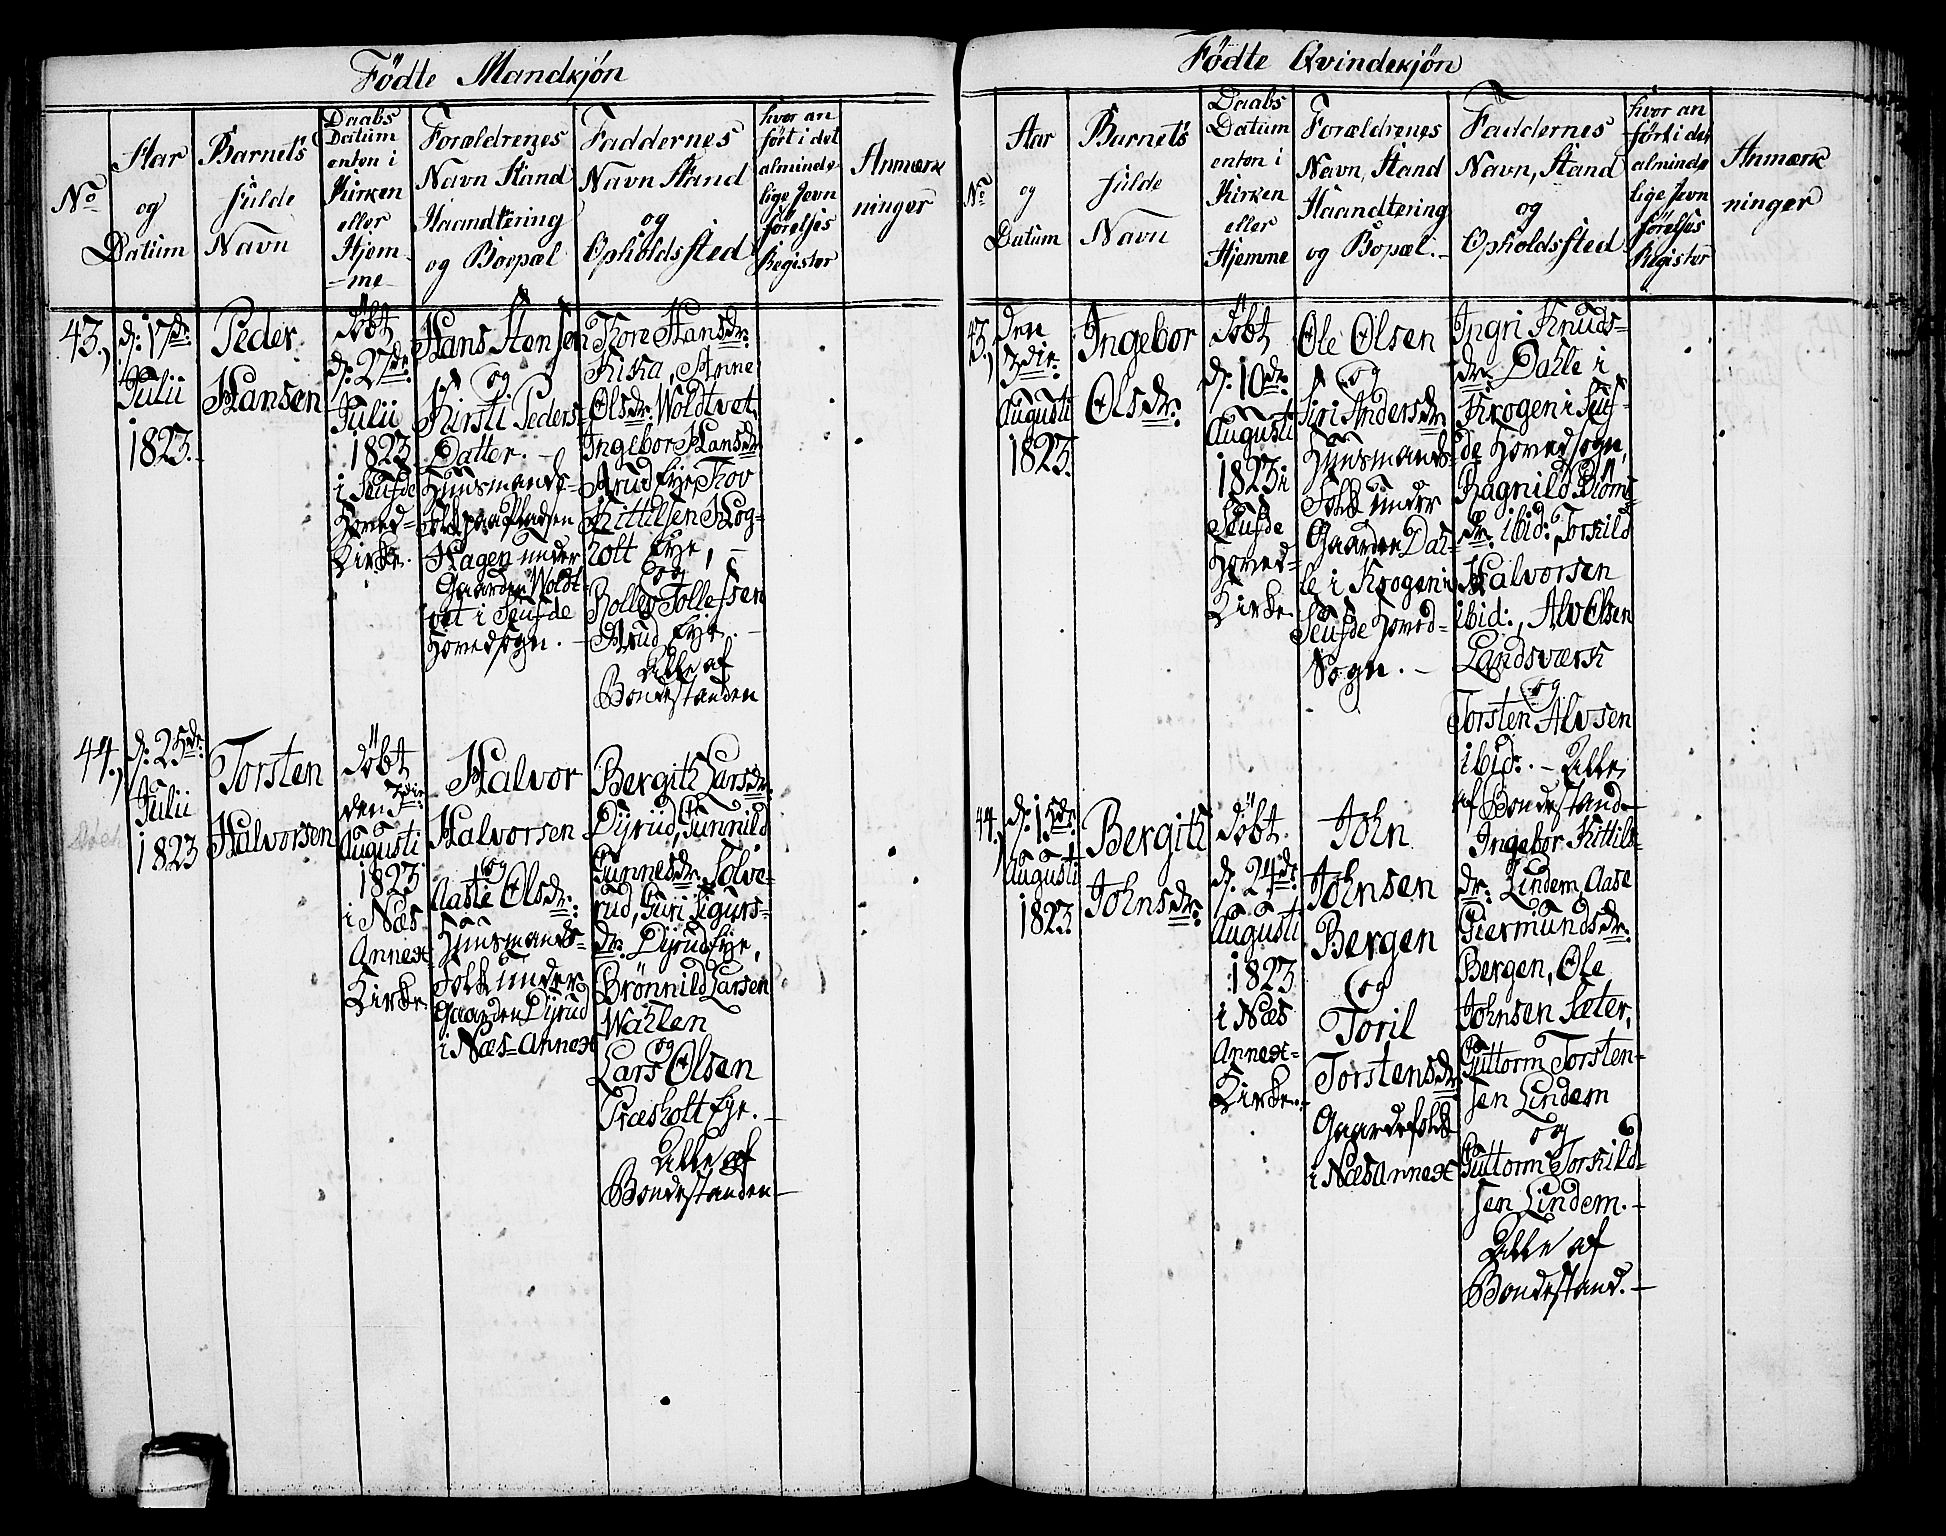 Födte Mandkjön
No
Aar
og
Datum
Barnets
fulde
Navn
Daabs
Datum
enten i
Kirken
eller
Hjem-
-me-
Forældrenes
Navn Stand
Haandtering
og Boepæl
Faddernes
Navn Stand
og
Opholdssted
hvor an
ført i det
alminde
lige Jevn
förelses
Register
Anmærk
ninger
43.,
d: 17de
Julii
1823.-
Peder
Hansen
döbt
d: 27de
Julii
1823
i Seufde
Hoved-
Kirke.
Hans Stensen
og
Kirsti Peders-
Datter.-
Huusmands-
folk paa Pladsen
Hagen under
Gaarden Woldt
vet i Seufde
Hovedsogn.-
Tore Hansdr:
Kiska, Anne
Olsdr: Woldtvet,
Ingebor Hansdr
Aarud Eye, Tov
Kittilsen Hog-
holt Eye,-
og
Rollef Tollefsen
Aarud Eye.-
Alle af
Bondestanden
44.,
d: 25de
Julii
1823
Torsten
Halvorsen
döbt
den 3die
Augusti
1823
i Næs
Annex
Kirke.
Halvor
Halvorsen
og
Aaste Olsdr:
Huusmands-
Folk under
Gaarden Dyrud
i Næs-Annex
Bergith Larsdr:
Dyrud, Gunnild
Gunnesdr: Solve-
rud, Guri Sigurs-
dr: Dyrud Eye,
Brönnild Larsen
Wahlen
og
Lars Olsen
Træsholt Eye.-
Alle af
Bondestanden-
Födte Qvindekjön
No
Aar
og
Datum
Barnets
fulde
Navn
Daabs
Datum
enten i
Kirken
eller
Hjemme
Forældrenes
Navn, Stand
Haandtering
og Bopæl.-
Faddernes
Navn, Stand
og
Opholdssted
hvor an
ført i det
alminde
lige Jevn
förelses
Register
Anmærk
ninger
43.,
Den
3die
Augusti
1823.
Ingebor
Olsdr:
döbt
d: 10de
Augusti
1823 i
Seufde
Hoved-
Kirke.
Ole Olsen
og
Siri Andersdr
Huusmands-
Folk under
Gaarden Dah-
le i Krogen i
Seufde Hoved-
Sogn.-
Ingri Knuds-
dr: Dahle i
Krogen i Seuf-
de Hovedsogn,
Ragnild
dr: ibid: Torkild
Halvorsen
ibid:, Alv Olsen
Landsværk
og
Torsten Alvsen
ibid:.- Alle
af Bondestand-
44.,
d: 15de
Augusti
1823.
Bergith
Johnsdr:
döbt
d: 24de
Augusti
1823
i Næs
Annex-
Kirke.-
John
Johnsen
Bergen
og
Toril
Torstensdr
Gaardefolk
i Næs Annex
Ingebor Kittils-
dr: Lindem, Aase
Giermundsdr:
Bergen, Ole
Johnsen Sæter,
Guttorm Torsten-
sen Lindem
og
Guttorm Torkild-
sen Lindem.-
Alle af
Bondestand.-